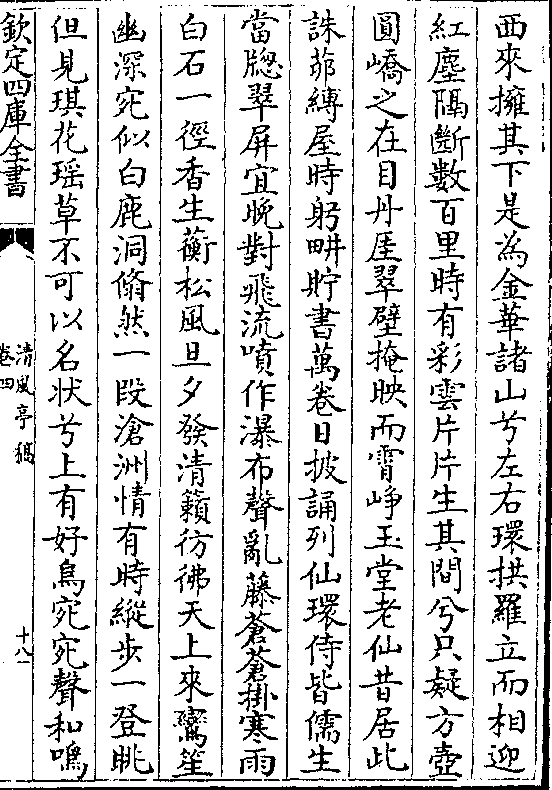 西來擁其下是為金華諸山兮左右環拱羅立而相迎
紅塵隔斷數百里時有彩雲片片生其間兮只疑方壺
圓嶠之在目丹厓翠壁掩映而霄崢玉堂老仙昔居此
誅茆縛屋時躬畊貯書萬卷日披誦列仙環侍皆儒生
當牕翠屏宜晚對飛流噴作瀑布聲亂藤蒼蒼掛寒雨
白石一徑香生蘅松風旦夕發清籟彷彿天上來鸞笙
幽深宛似白鹿洞翛然一段滄洲情有時縱步一登眺
但見琪花瑶草不可以名状兮上有好鳥宛宛聲和鳴
欽定四庫全書
清風亭稿
卷四
十八